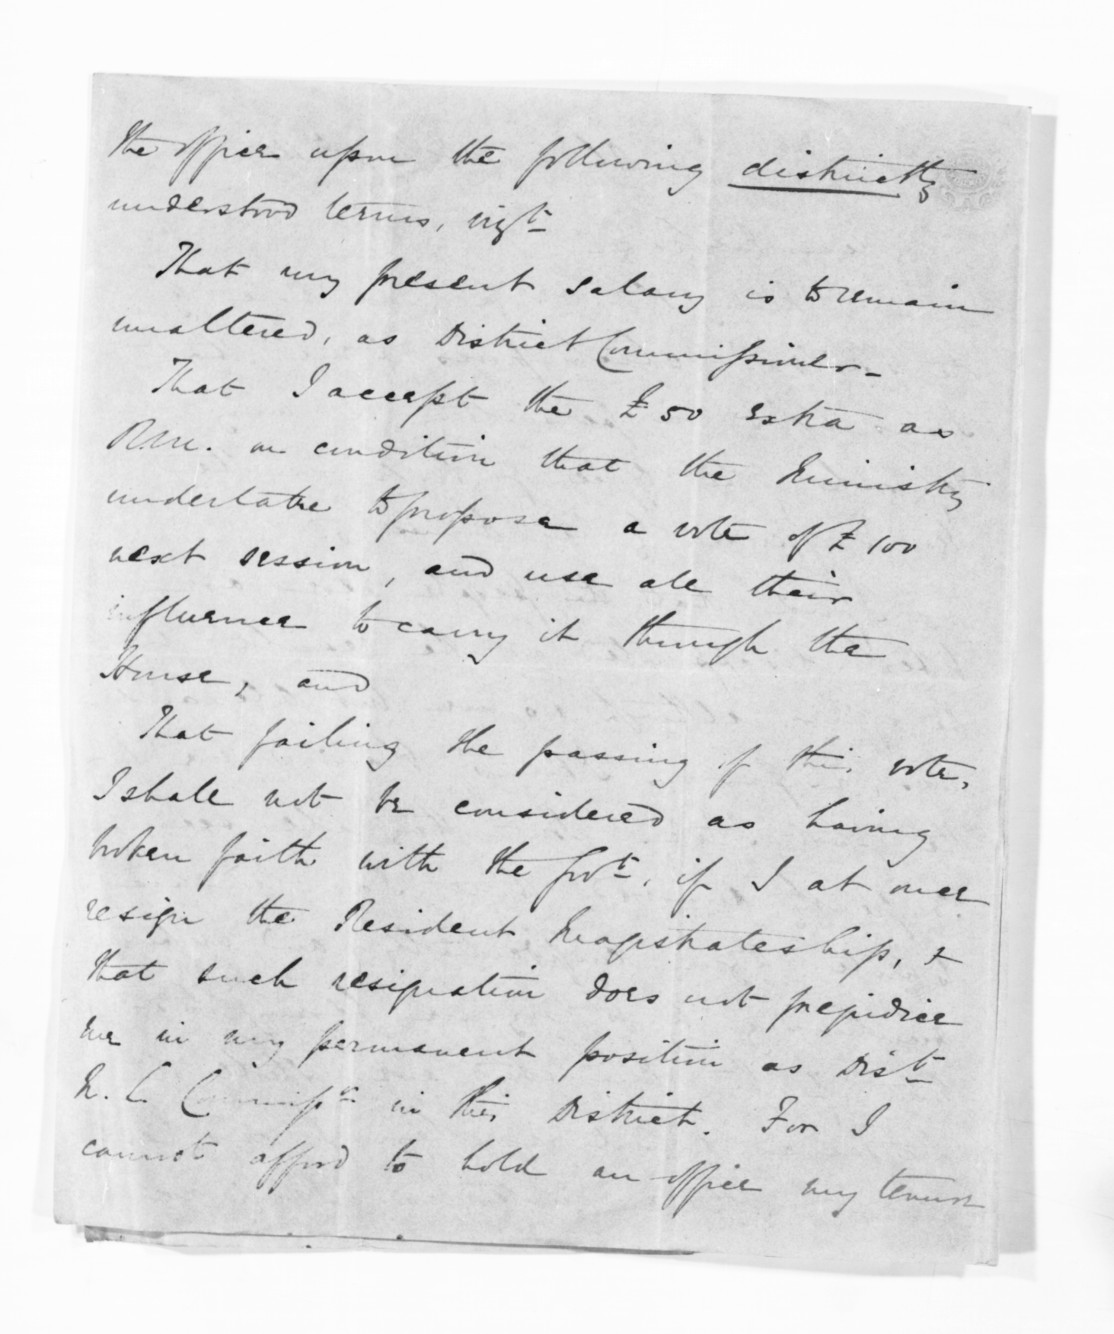 the office upon the following distinctly
understood terms, vizt
That my present salary is to remain
unaltered, as District Commissioner.
That I accept the £50 extra as
R.M. on condition that the Ministry
undertake to propose a vote of £100
next session, and use all their
influence to carry it through the
House, and
That failing the passing of this vote,
I shall not be considered as having
broken faith with the Govt. if I at once
resign the Resident Magistrateship, &
that such resignation does not prejudice
me in my permanent position as Distt
L. C. Commissr in this District. For I
cannot afford to hold an office my tenure